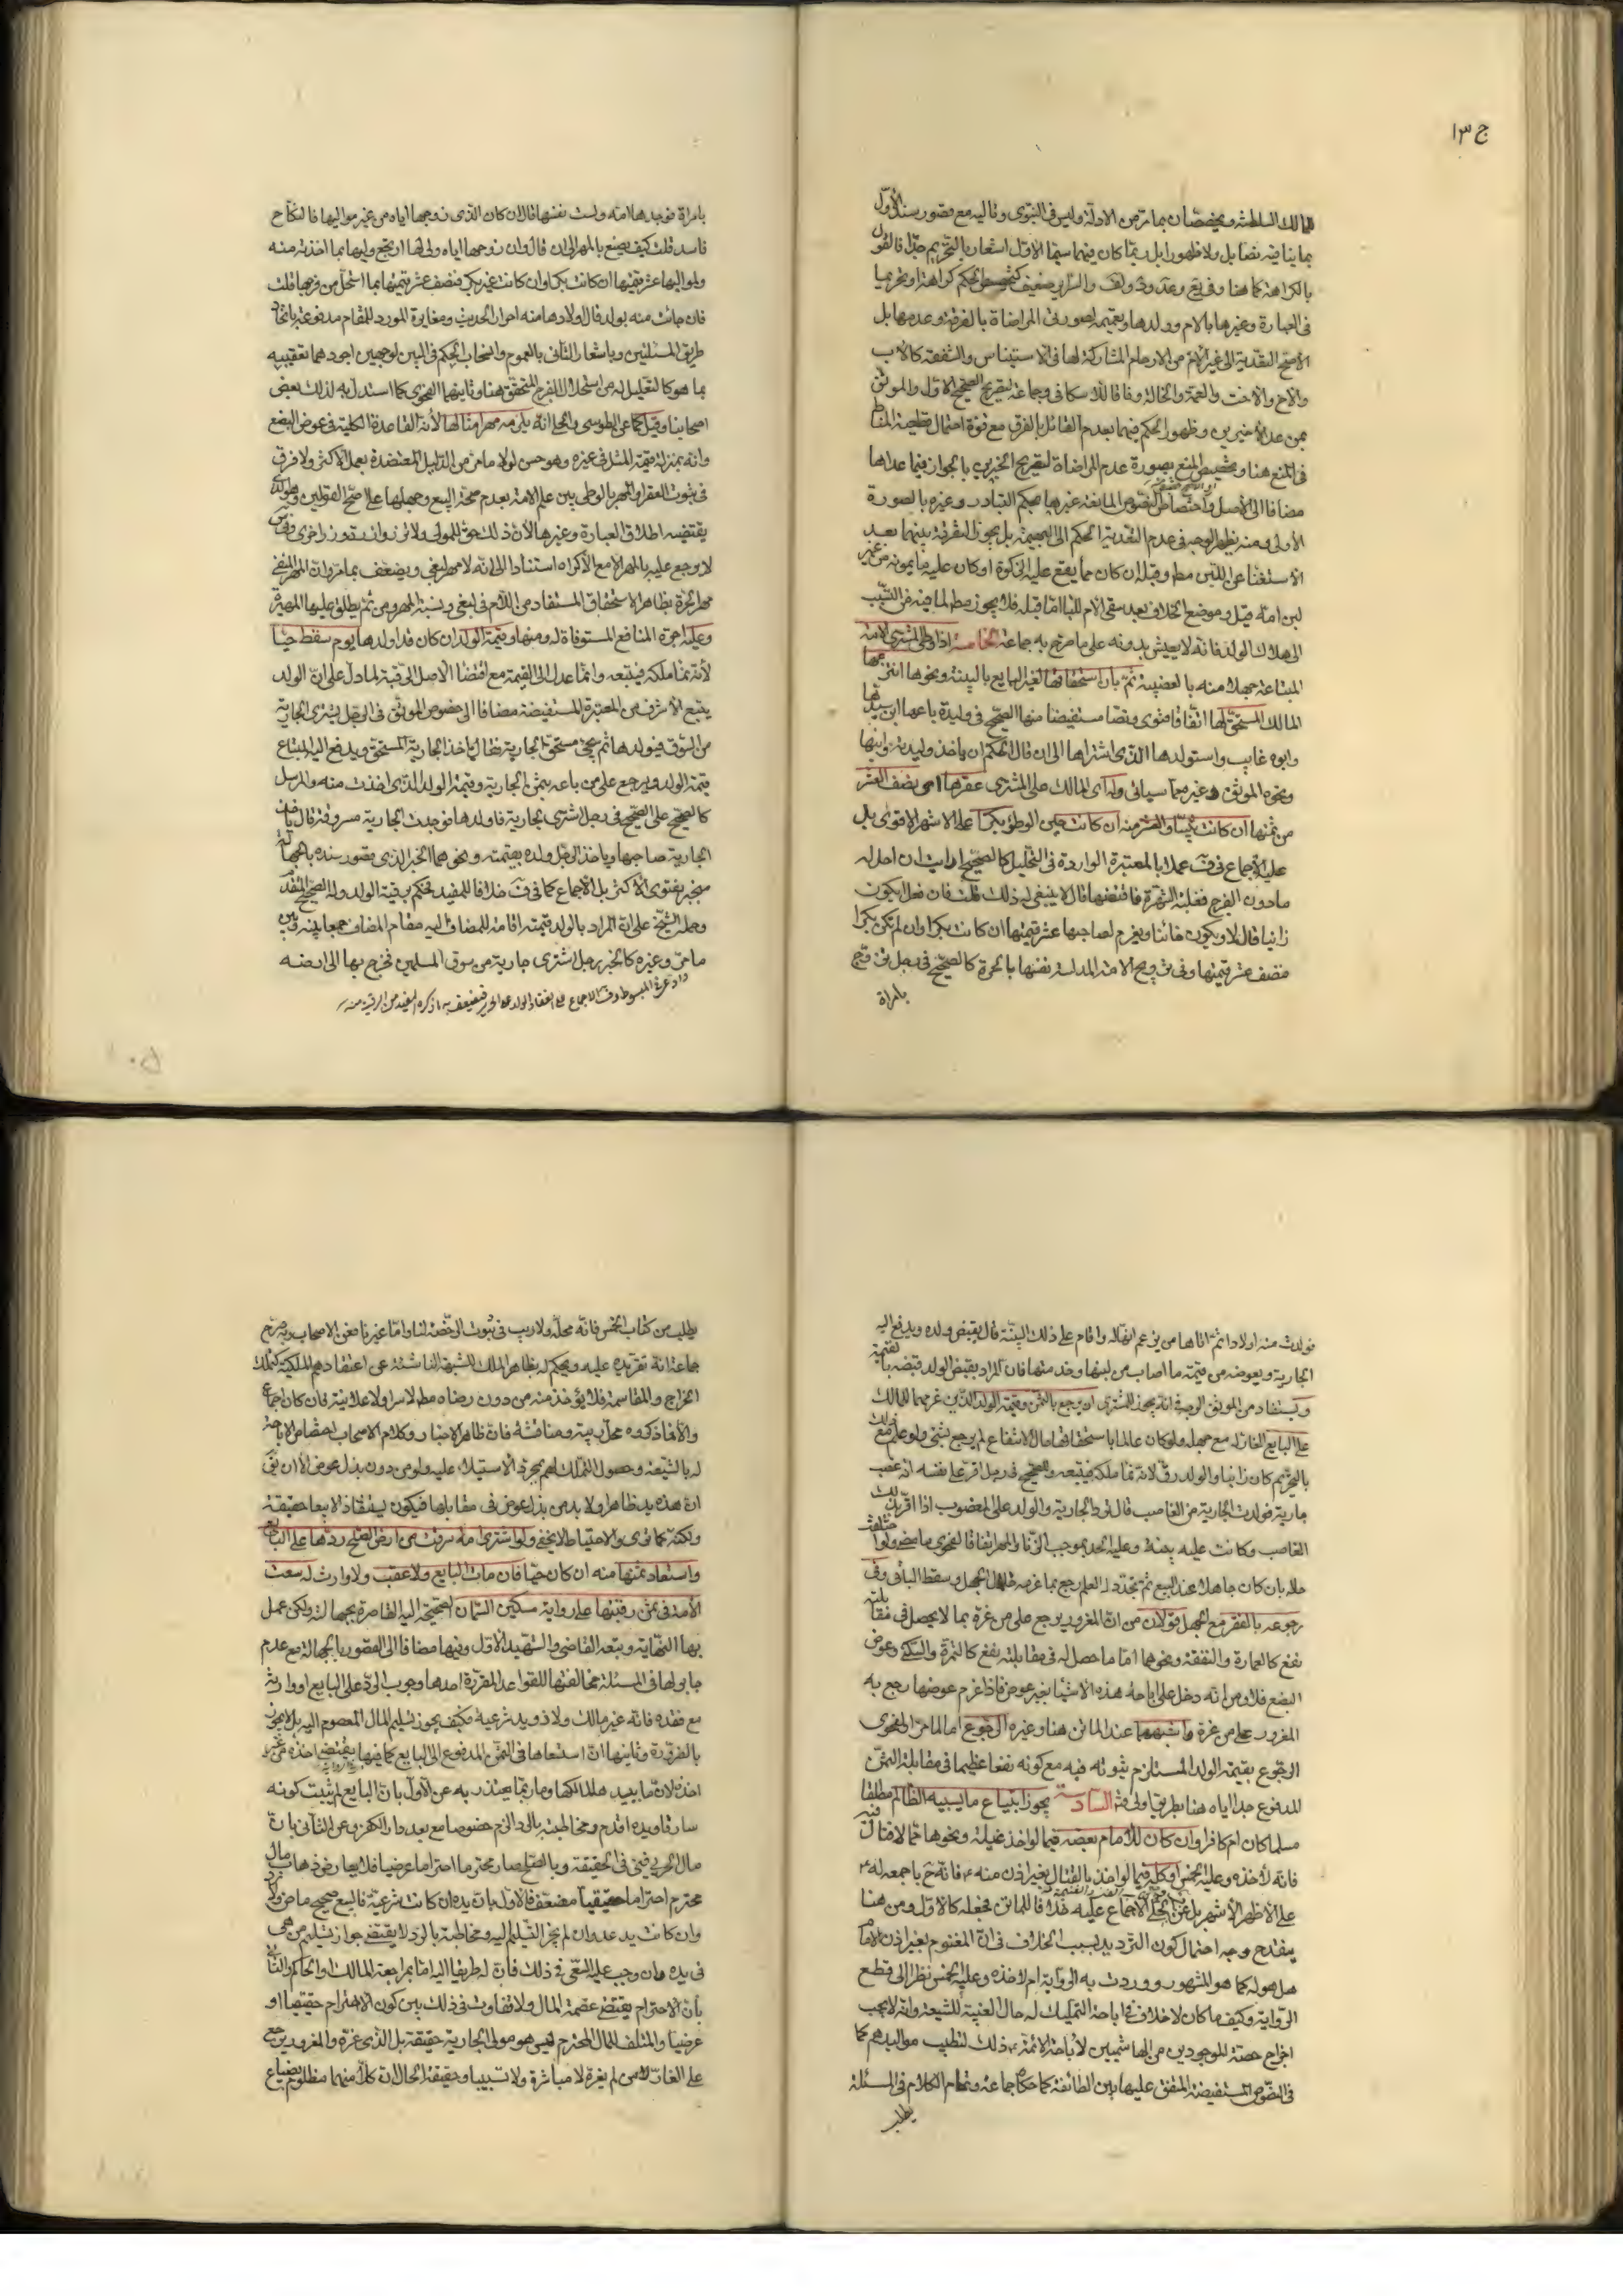 ج ١٣
المالك السلطنة ويخصصان بما مر من الادلة وليس في النبوى وتاليه مع قصور سند الأول
بما ينافيه نصا بل ولا ظهورا بل ربما كان فيهما سيما الاول اشعار بالتحريم جدا فالقول
بالكراهة كما هنا وفي يع وعد
في العبارة وغيرها بالام وولدها وتعميمه لصورتى المراضاة بالفرقة وعدمها بل
الأصح التعدية الى غير الام من الارحام المشاركة لها في الاستيناس والشفقة كالاب
والاخ والاخت والعمة والخالة وفاقا للاسكافى وجماعة لتصريح الصحيح الاول والموثق
بمن عدا الأخيرين وظهور الحكم فيهما بعدم القائل بالفرق مع قوة احتمال قطعية المناط
في المنع هنا وتخصيص المنع بصورة عدم المراضاة لتصريح الخبرين بالجواز فيما عداها
مضافا الى الأصل واختصاص النصوص المانعة غيرهما بحكم التبادر وغيره بالصورة
الأولى ومنه يظهر الوجه في عدم التعدية الحكم الى البهيمة بل يجوز التفرقة بينهما بعد
الاستغناء عن اللبن مطم وقبله ان كان مما يقع عليه الذكوة او كان عليه ما يمونه من غير
لبن امه قيل وموضع الخلاف بعد سقى الام اللباء اما قبله فلا يجوز مطم لما فيه من التسبب
الى هلاك الولد فانه لا يعيش بدونه على ما صرح به جماعة الخامسة اذا وطى المشترى الامة
المبتاعة جهلا منه بالغصبية ثم بان استحقاقها لغير البايع بالبينة ونحوها انتزعها
المالك المستحق لها اتفاقا فتوى ونصا مستفيضا منها الصحيح في وليدة باعها ابن سيدها
وابوه غايب واستولدها الذى اشتراها الى ان قال الحكم ان ياخذ وليدته وابنها
ونحوه الموثق وغيره مما سياتى وله اى المالك على المشترى عقرها اى نصف العشر
من ثمنها ان كانت ثيبا والعشر منه ان كانت حين الوطؤ بكرا على الاشهر الاقوى بل
عليه الاجماع في ف عملا بالمعتبرة الواردة في التحليل كالصحيح ارايت ان احل له
ما دون الفرج فغلبته الشهوة فافتضها قال لا ينبغى له ذلك قلت فان فعل ايكون
زانيا قال لا ويكون خائنا ويغرم لصاحبها عشر قيمتها ان كانت بكرا وان لم تكن بكرا
فنصف عشر قيمتها وفى تزويج الامة المدلسة نفسها بالحرة كالصحيح في رجل تزوج
بامراة
بامراة فوجدها امة دلست نفسها قال ان كان الذى زوجها اياه من غير مواليها فالنكاح
فاسد قلت كيف يصنع بالمهر الى ان قال وان زوجها اياه ولى لها ارتجع وليها بما اخذته منه
ولمواليها عشر قيمتها ان كانت بكرا وان كانت غير بكر فنصف عشر قيمتها بما استحل من فرجها قلت
فان جائت منه بولد قال اولادها منه احرار الحديث ومغايرة المورد للمقام مدفوعة باتحاد
طريق المسئلتين وباشعار الثانى بالعموم وانسحاب الحكم في البين لوجهين اجودهما تعقيبه
بما هو كالتعليل له من استحلال الفرج المتحقق هنا وثانيهما الفحوى كما استدل به لذلك بعض
اصحابنا وقيل كما عن الطوسى والحلى انه يلزمه مهر امثالها لأنه القاعدة الكلية في عوض البضع
وانه بمنزلة قيمة المثل في غيره وهو حسن لولا ما مر من الدليل المعتضدة بعمل الاكثر ولا فرق
في ثبوت العقر او المهر بالوطى بين علم الامة بعدم صحة البيع وجهلها على اصح القولين وهو الذى
يقتضيه اطلاق العبارة وغيرها لأن ذلك حق للمولى ولا تزر وازرة وزر اخرى وفى س
لا يرجع عليه بالمهر الا مع الأكراه استنادا الى انه لا مهر لبغى ويضعف بما مر وان المهر المنفى
مهر الحرة بظاهر الاستحقاق المستفاد من اللام في لبغى ونسبة المهر ومن ثم يطلق عليها المهيرة
وعليه اجرة المنافع المستوفاة له ومنها وقيمة الولد ان كان قد اولدها يوم سقط حيا
لأنه نماء ملكه فيتبعه وانما عدل الى القيمة مع اقتضاء الاصل الرقية لما دل على ان الولد
يتبع الاشرف من المعتبرة المستفيضة مضافا الى خصوص الموثق في الرجل يشترى الجارية
من السوق فيولدها ثم يجئ مستحق الجارية فقال ياخذ الجارية المستحق ويدفع اليه المبتاع
قيمة الولد ويرجع على من باعه بثمن الجارية وقيمة الولد الذى اخذت منه والمرسل
كالصحيح على الصحيح في رجل اشترى جارية فاولدها فوجدت الجارية مسروقة قال ياخذ
الجارية صاحبها وياخذ الرجل ولده بقيمته ونحوهما الخبر الذى قصور سنده بالجهالة
منجبر بفتوى الأكثر بل الاجماع كما في ف خلافا للمفيد فحكم برقية الولد وله الصحيح المتقدم
وحمله الشيخ على ان المراد بالولد قيمته اقامة للمضاف اليه مقام المضاف جمعا بينه وبين
ما مر وغيره كالخبر رجل اشترى جارية من سوق المسلمين فخرج بها الى ارضه
وادعى في المبسوط وف الاجماع على انعقاد الولد على الحرية فيضعف به ما ذكره المفيد من الرقية منه
فولدت منه اولادا ثم اتاها من يزعم انها له واقام على ذلك البينة قال يقبض ولده ويدفع اليه
الجارية ويعوضه من قيمة ما اصاب من لبنها وخدمتها فان المراد بقبض الولد قبضه بالقيمة
ويستفاد من الموثق الوجه في انه يجوز للمشترى ان يرجع بالثمن وقيمة الولد الذين غرمهما للمالك
على البايع الغار له مع جهله ولو كان عالما باستحقاقها حال الانتفاع لم يرجع بشئ ولو علم مع ذلك
بالتحريم كان زانيا والولد رق لانه نماء ملكه فيتبعه وللصحيح في رجل اقر على نفسه انه غصب
جارية فولدت الجارية من الغاصب قال ترد الجارية والولد على المغصوب اذا اقر بذلك
الغاصب وكانت عليه بينة وعليه الحد بموجب الزنا والمهر اتفاقا لفحوى ما مضى ولو اختلفت
حاله بان كان جاهلا عند البيع ثم تجدد له العلم رجع بما غرمه حال الجهل وسقط الباقى وفى
رجوعه بالعقر مع الجهل قولان من ان المغرور يرجع على من غره بما لا يحصل في مقابلته
نفع كالعمارة والنفقة ونحوهما اما ما حصل له في مقابلته نفع كالثمرة والسكنى وعوض
البضع فلا ومن انه دخل على اباحة هذه الاشياء بغير عوض فاذا غرم عوضها رجع به
المغرور على من غره واشبههما عند الماتن هنا وغيره الرجوع اما لما مر او لفحوى
الرجوع بقيمة الولد المستلزم ثبوته فيه مع كونه نفعا عظيما في مقابلة الثمن
المدفوع حدا اياه هنا بطريق اولى السادسة يجوز ابتياع ما يسبيه الظالم مطلقا
مسلما كان ام كافرا وان كان للامام بعضه فيما لو اخذ غيلة ونحوها مما لا قتال فيه
فانه لآخذه وعليه الخمس او كله فيما لو اخذ بالقتال بغير اذن منه ع فانه ح باجمعه له ع
على الأظهر الأشهر بل عن الحلى الاجماع عليه خلافا للماتن فجعله كالاول ومن هنا
ينقدح وجه احتمال كون الترديد بسبب الخلاف في ان المغنوم بغير اذن الامام
هل هو له كما هو المشهور ووردت به الرواية ام لآخذه وعليه الخمس نظرا الى قطع
الرواية وكيف ما كان لا خلاف في اباحة التمليك له حال الغيبة للشيعة وانه لا يجب
اخراج حصة للموجودين من الهاشميين لأباحة الائمة ع ذلك لتطيب مواليدهم كما
في النصوص المستفيضة المتفق عليها بين الطائفة كما حكاه جماعة وتمام الكلام في المسئلة
يطلب
يطلب من كتاب الخمس فانه محله ولا ريب في ثبوت الرخصة لنا واما غيرنا فعن الاصحاب وبه صرح
جماعة انه تقر يده عليه ويحكم له بظاهر الملك للشبهة الناشئة عن اعتقادهم الملكية كتملك
الخراج والمقاسمة فلا يؤخذ منه من دون رضاه مطم لا سرا ولا علانية فان كان اجماع
والأ ففيما ذكروه محل ريبة ومناقشة فان ظاهر الاخبار وكلام الاصحاب اختصاص الاباحة
له بالشيعة وحصول التملك لهم بمجرد الاستيلاء عليه ولو من دون بذل عوض الأ ان يق
ان هذه يد ظاهرا ولا بد من بذل عوض في مقابلها فيكون استنقاذا لا بيعا حقيقة
ولكنه كما ترى والاحتياط لا يخفى ولو اشترى امة سرقت من ارض الصلح ردها على البايع
واستعاد ثمنها منه ان كان حيا فان مات البايع ولا عقب ولا وارث له سعت
الأمة في ثمن رقبتها على رواية مسكين السمان الصحيحة اليه القاصرة بجهالته ولكن عمل
بها النهاية وتبعه القاضى والشهيد الاول وفيها مضافا الى القصور بالجهالة مع عدم
جابر لها في المسئلة مخالفتها للقواعد المقررة احدها وجوب الرد على البايع او وارثه
مع فقده فانه غير مالك ولا ذو يد شرعية فكيف يجوز تسليم المال المعصوم اليه بل لا يجوز
بالضرورة وثانيها ان استسعاءها في الثمن المدفوع الى البايع كما فيها يقتضى اخذه من غير
اخذه لان ما بيد هلك ملك لها وما ربما يعتذر به عن الاول بان البايع لم يثبت كونه
سارقا ويده اقدم ومخاطبته بالرد الزم خصوصا مع بعد دار الكفر وعن الثانى بان
مال الحربى فئ في الحقيقة وبالصلح صار محترما احتراما عرضيا فلا يعارض ذهاب مال
محترم احتراما حقيقيا مضعف فالأول بان يده ان كانت شرعية فالبيع صحيح ماض ولا رد
وان كانت يد عدوان لم يجز التسليم اليه ومخاطبته بالرد لا يقتضى جواز تسليم من هى
في يده وان وجب عليه السعى في ذلك فان له طريقا اليه اما بمراجعة المالك او الحاكم والثانى
بأن الاحترام يقتضى عصمة المال ولا تفاوت في ذلك بين كون الاحترام حقيقيا او
عرضيا والمتلف للمال المحترم ليس هو مولى الجارية حقيقة بل الذى غره والمغرور يرجع
على الغار لا من لم يغره لا مباشرة ولا تسبيبا وحقيقة الحال ان كلا منهما مظلوم بضياع